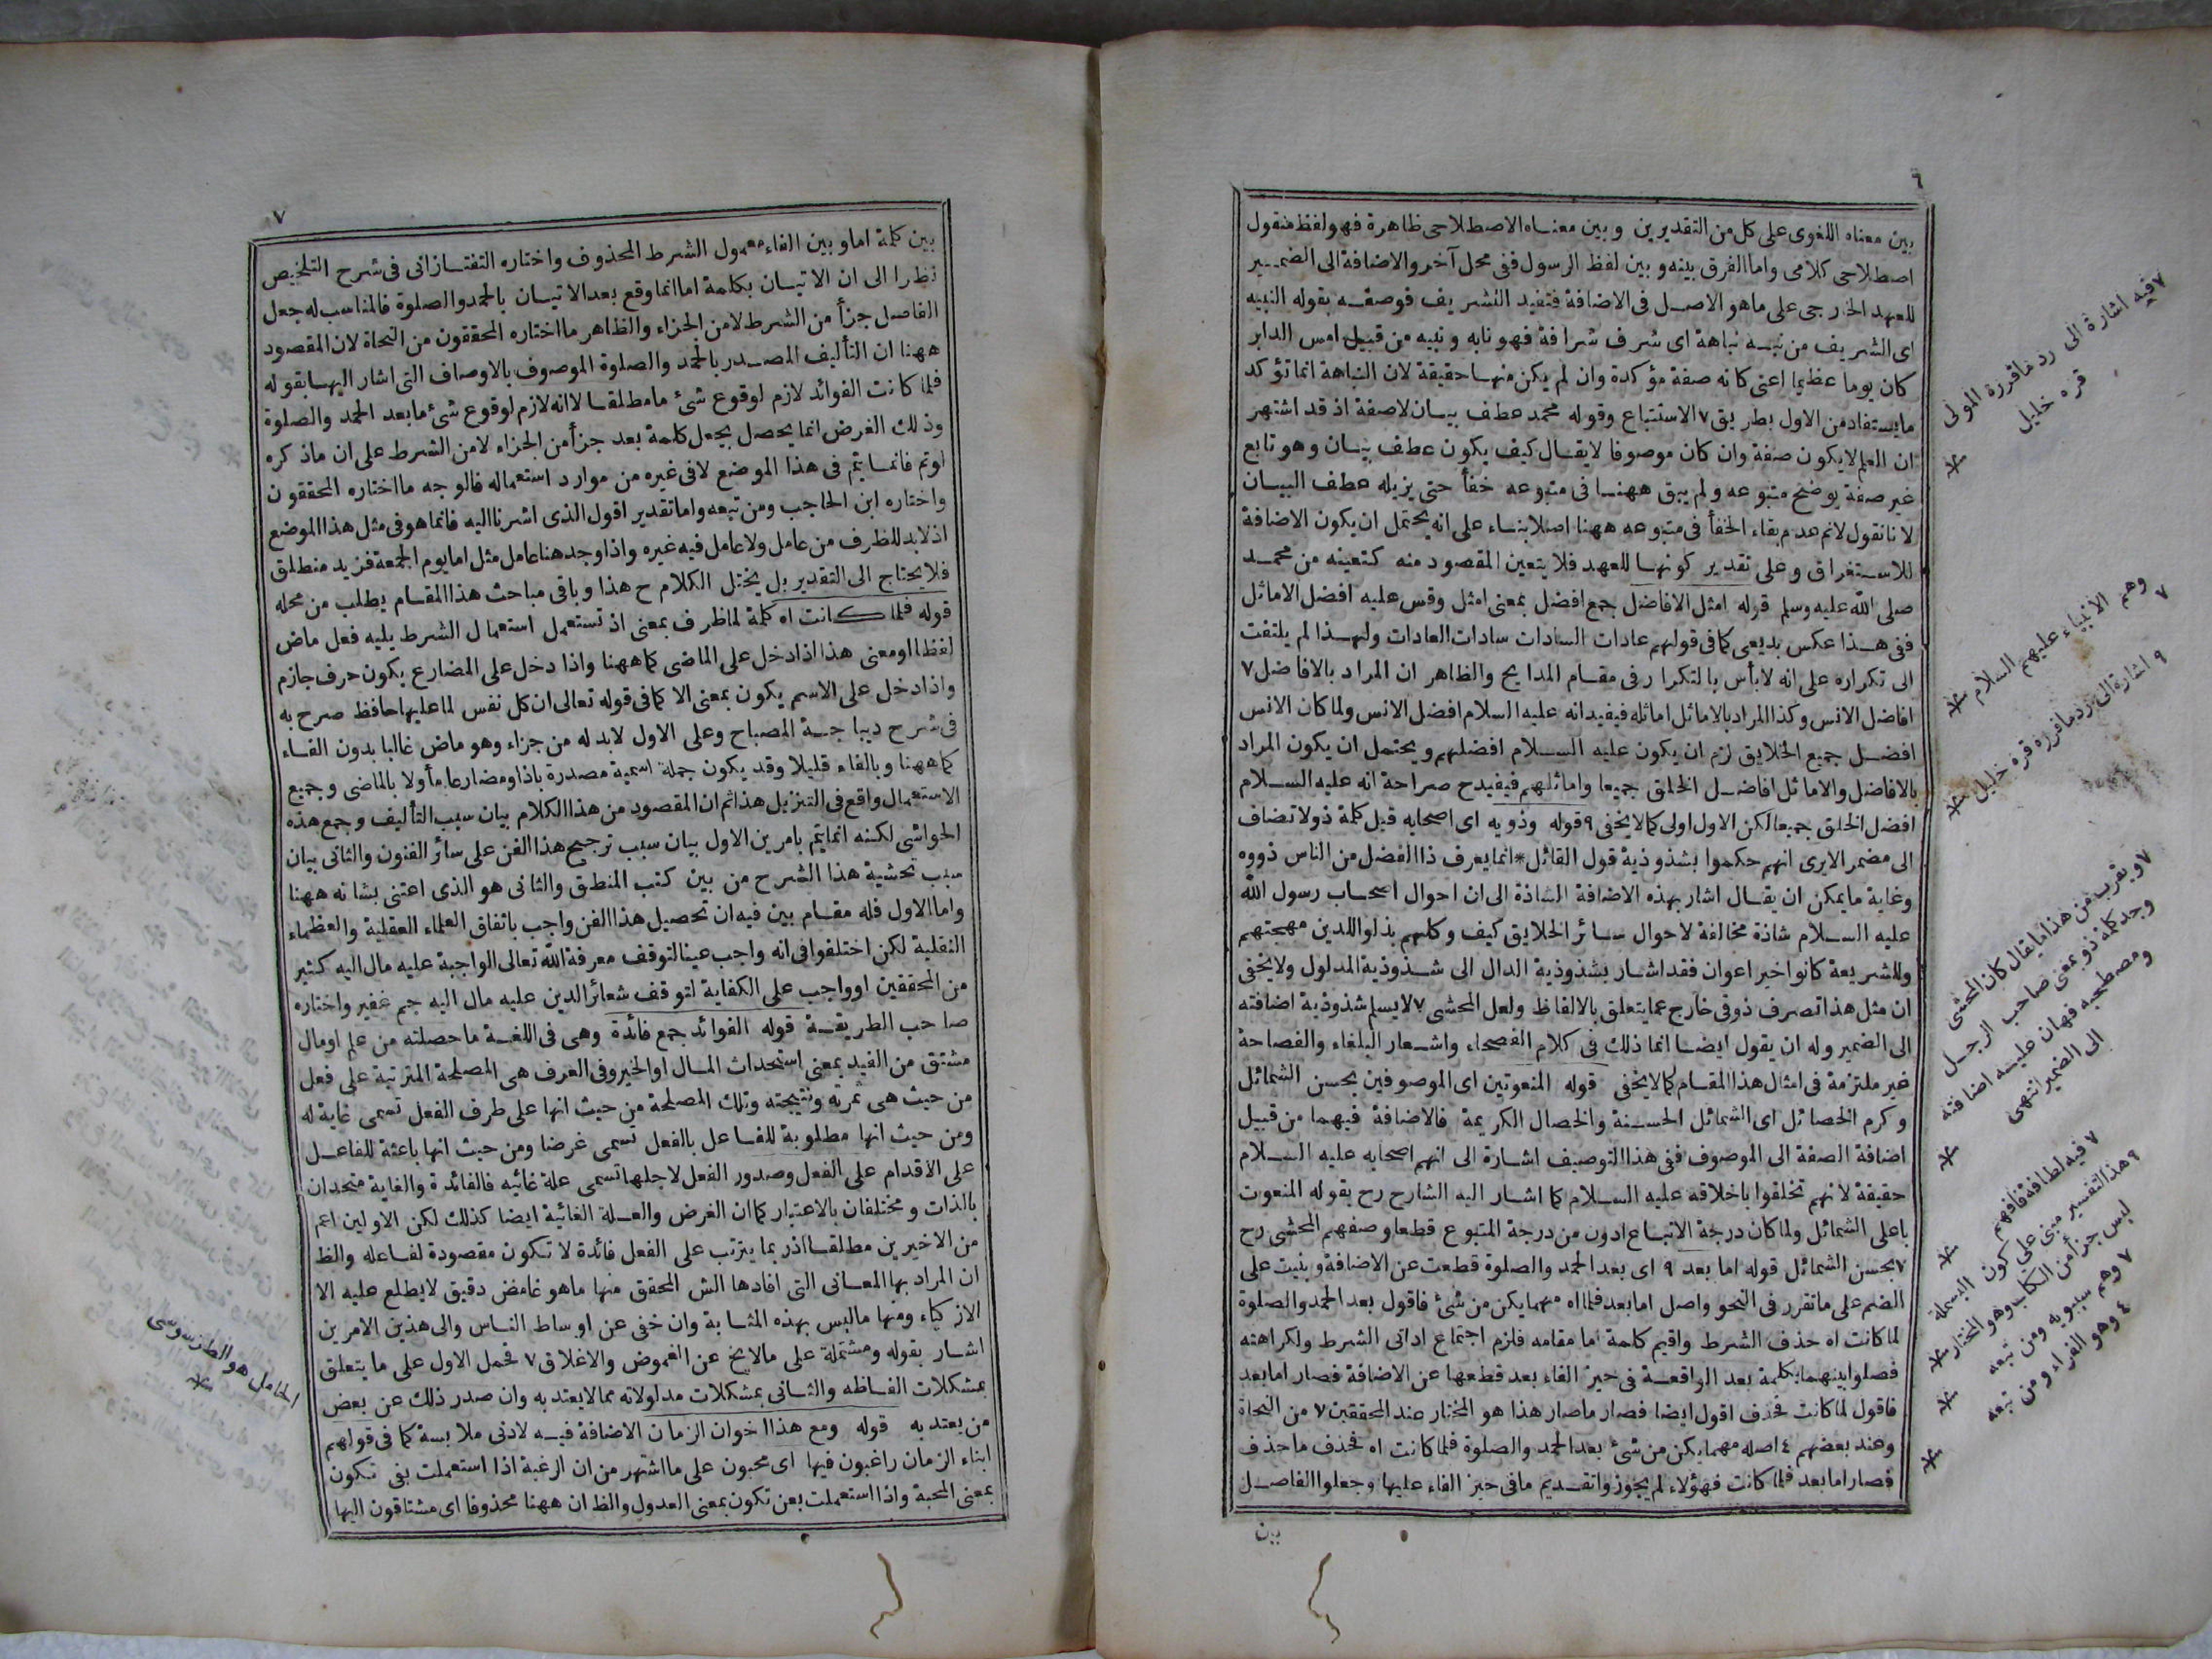 ٦
بين معناه اللغوى على كل من التقديرين وبين معناه الاصطلاحى ظاهرة فهو لفظ منقول
اصطلاحى كلامى واما الفرق بينه وبين لفظ الرسول ففى محل آخر والاضافة الى الضمير
للعهد الخارجى على ماهو الاصل فى الاضافة فتفيد التشريف فوصفه بقوله النبيه
اى الشريف من نبه نباهة اى شرف شرافة فهو نابه ونبيه من قبيل امس الدابر
كان يوما عظيما اعنى كانه صفة مؤكدة وان لم يكن منها حقيقة لان النباهة انما تؤكد
مايستفاد من الاول بطريق ٧ الاستتباع وقوله محمد عطف بيان لاصفة اذ قد اشتهر
ان العلم لايكون صفة وان كان موصوفا لايقال كيف يكون عطف بيان وهو تابع
غير صفة يوضح متبوعه ولم يبق ههنا فى متبوعه خفأ حتى يزيله عطف البيان
لانا نقول لانم عدم بقاء الخفأ فى متبوعه ههنا اصلا بناء على انه يحتمل ان يكون الاضافة
للاستغراق وعلى تقدير كونها للعهد فلا يتعين المقصود منه كتعينه من محمد
صلى الله عليه وسلم قوله امثل الافاضل جمع افضل بمعنى امثل وقس عليه افضل الاماثل
ففى هذا عكس بديعى كما فى قولهم عادات السادات سادات العادات ولهذا لم يلتفت
الى تكراره على انه لابأس بالتكرار فى مقام المدايح والظاهر ان المراد بالافاضل ٧
افاضل الانس وكذا المراد بالاماثل اماثله فيفيد انه عليه السلام افضل الانس ولما كان الانس
افضل جميع الخلايق لزم ان يكون عليه السلام افضلهم ويحتمل ان يكون المراد
بالافاضل والاماثل افاضل الخلق جميعا واماثلهم فيفيد ح صراحة انه عليه السلام
افضل الخلق جميعا لكن الاول اولى كما لايخفى ٩ قوله وذويه اى اصحابه قيل كلمة ذو لاتضاف
الى مضمر الايرى انهم حكموا بشذوذية قول القائل * انما يعرف ذا الفضل من الناس ذووه
وغاية مايمكن ان يقال اشار بهذه الاضافة الشاذة الى ان احوال اصحاب رسول الله
عليه السلام شاذة مخالفة لاحوال سائر الخلايق كيف وكلهم بذلوا للدين مهجتهم
وللشريعة كانوا خير اعوان فقد اشار بشذوذية الدال الى شذوذية المدلول ولايخفى
ان مثل هذا تصرف ذوقى خارج عما يتعلق بالالفاظ ولعل المحشى ٧ لايسلم شذوذية اضافته
الى الضمير وله ان يقول ايضا انما ذلك فى كلام الفصحاء واشعار البلغاء والفصاحة
غير ملتزمة فى امثال هذا المقام كما لايخفى قوله المنعوتين اى الموصوفين بحسن الشمائل
وكرم الخصائل اى الشمائل الحسنة والخصال الكريمة فالاضافة فيهما من قبيل
اضافة الصفة الى الموصوف ففى هذا التوصيف اشارة الى انهم اصحابه عليه السلام
حقيقة لانهم تخلقوا باخلاقه عليه السلام كما اشار اليه الشارح رح بقوله المنعوت
باعلى الشمائل ولما كان درجة الاتباع ادون من درجة المتبوع قطعا وصفهم المحشى رح
٧ بحسن الشمائل قوله اما بعد ٩ اى بعد الحمد والصلوة قطعت عن الاضافة وبنيت على
الضم على ماتقرر فى النحو واصل اما بعد فلما اه مهما يكن من شئ فاقول بعد الحمد والصلوة
لما كانت اه حذف الشرط واقيم كلمة اما مقامه فلزم اجتماع اداتى الشرط ولكراهته
فصلوا بينهما بكلمة بعد الواقعة فى حيز الفاء بعد قطعها عن الاضافة فصار اما بعد
فاقول لما كانت فحذف اقول ايضا فصار ماصار هذا هو المختار عند المحققين ٧ من النحاة
وعند بعضهم ٤ اصله مهما يكن من شئ بعد الحمد والصلوة فلما كانت اه فحذف ماحذف
فصار اما بعد فلما كانت فهؤلاء لم يجوزوا تقديم مافى حيز الفاء عليها وجعلوا الفاصل
بين
٧ فيه اشارة الى رد ماقرره المولى
قره خليل
٧
وهم الانبياء عليهم السلام
٩ اشارة الى رد ماقرره قره خليل
٧ ويقرب من هذا مايقال كان المحشى
وجد كلمة ذو بمعنى صاحب الرجل
ومصطحبه فهان عليه اضافته
الى الضمير انتهى
٧ فيه لطافة فافهم
٩ هذا التفسير مبنى على كون البسملة
ليس جزأ من الكتاب وهو المختار
٧ وهم سيبويه ومن تبعه
٤ وهو الفراء ومن تبعه
٧
بين كلمة اما وبين الفاء معمول الشرط المحذوف واختاره التفتازانى فى شرح التلخيص
نظرا الى ان الاتيان بكلمة اما انما وقع بعد الاتيان بالحمد والصلوة فالمناسب له جعل
الفاصل جزأ من الشرط لا من الجزاء والظاهر ما اختاره المحققون من النحاة لان المقصود
ههنا ان التأليف المصدر بالحمد والصلوة الموصوف بالاوصاف التى اشار اليها بقوله
فلما كانت الفوائد لازم لوقوع شئ ما مطلقا لا انه لازم لوقوع شئ ما بعد الحمد والصلوة
وذلك الغرض انما يحصل بجعل كلمة بعد جزأ من الجزاء لا من الشرط على ان ماذكره
لو تم فانما يتم فى هذا الموضع لا فى غيره من موارد استعماله فالوجه ما اختاره المحققون
واختاره ابن الحاجب ومن تبعه واما تقدير اقول الذى اشرنا اليه فانما هو فى مثل هذا الموضع
اذ لابد للظرف من عامل ولا عامل فيه غيره واذا وجد هنا عامل مثل اما يوم الجمعة فزيد منطلق
فلا يحتاج الى التقدير بل يختل الكلام ح هذا وباقى مباحث هذا المقام يطلب من محله
قوله فلما كانت اه كلمة لما ظرف بمعنى اذ تستعمل استعمال الشرط يليه فعل ماض
لفظا او معنى هذا اذا دخل على الماضى كما ههنا واذا دخل على المضارع يكون حرف جازم
واذا دخل على الاسم يكون بمعنى الا كما فى قوله تعالى ان كل نفس لما عليها حافظ صرح به
فى شرح ديباجة المصباح وعلى الاول لابد له من جزاء وهو ماض غالبا بدون الفاء
كما ههنا وبالفاء قليلا وقد يكون جملة اسمية مصدرة باذا ومضارعا مأولا بالماضى وجميع
الاستعمال واقع فى التنزيل هذا ثم ان المقصود من هذا الكلام بيان سبب التأليف وجمع هذه
الحواشى لكنه انما يتم بامرين الاول بيان سبب ترجيح هذا الفن على سائر الفنون والثانى بيان
سبب تحشية هذا الشرح من بين كتب المنطق والثانى هو الذى اعتنى بشانه ههنا
واما الاول فله مقام بين فيه ان تحصيل هذا الفن واجب باتفاق العلماء العقلية والعظماء
النقلية لكن اختلفوا فى انه واجب عينا لتوقف معرفة الله تعالى الواجبة عليه مال اليه كثير
من المحققين او واجب على الكفاية لتوقف شعائر الدين عليه مال اليه جم غفير واختاره
صاحب الطريقة قوله الفوائد جمع فائدة وهى فى اللغة ماحصلته من علم او مال
مشتق من الفيد بمعنى استحداث المال او الخير وفى العرف هى المصلحة المترتبة على فعل
من حيث هى ثمرته ونتيجته وتلك المصلحة من حيث انها على طرف الفعل تسمى غاية له
ومن حيث انها مطلوبة للفاعل بالفعل تسمى غرضا ومن حيث انها باعثة للفاعل
على الاقدام على الفعل وصدور الفعل لاجلها تسمى علة غائيه فالفائدة والغاية متحدان
بالذات ومختلفان بالاعتبار كما ان الغرض والعلة الغائية ايضا كذلك لكن الاولين اعم
من الاخيرين مطلقا اذ ربما يترتب على الفعل فائدة لا تكون مقصودة لفاعله والظ
ان المراد بها المعانى التى افادها الش المحقق منها ماهو غامض دقيق لايطلع عليه الا
الازكياء ومنها ماليس بهذه المثابة وان خفى عن اوساط الناس والى هذين الامرين
اشار بقوله ومشتملة على مالايخ عن الغموض والاغلاق ٧ فحمل الاول على مايتعلق
بمشكلات الفاظه والثانى بمشكلات مدلولاته مما لايعتد به وان صدر ذلك عن بعض
من يعتد به قوله ومع هذا اخوان الزمان الاضافة فيه لادنى ملابسة كما فى قولهم
ابناء الزمان راغبون فيها اى محبون على ما اشتهر من ان الرغبة اذا استعملت بفى تكون
بمعنى المحبة واذا استعملت بعن تكون بمعنى العدول والظ ان ههنا محذوفا اى مشتاقون اليها
الحامل هو الطرسوسى